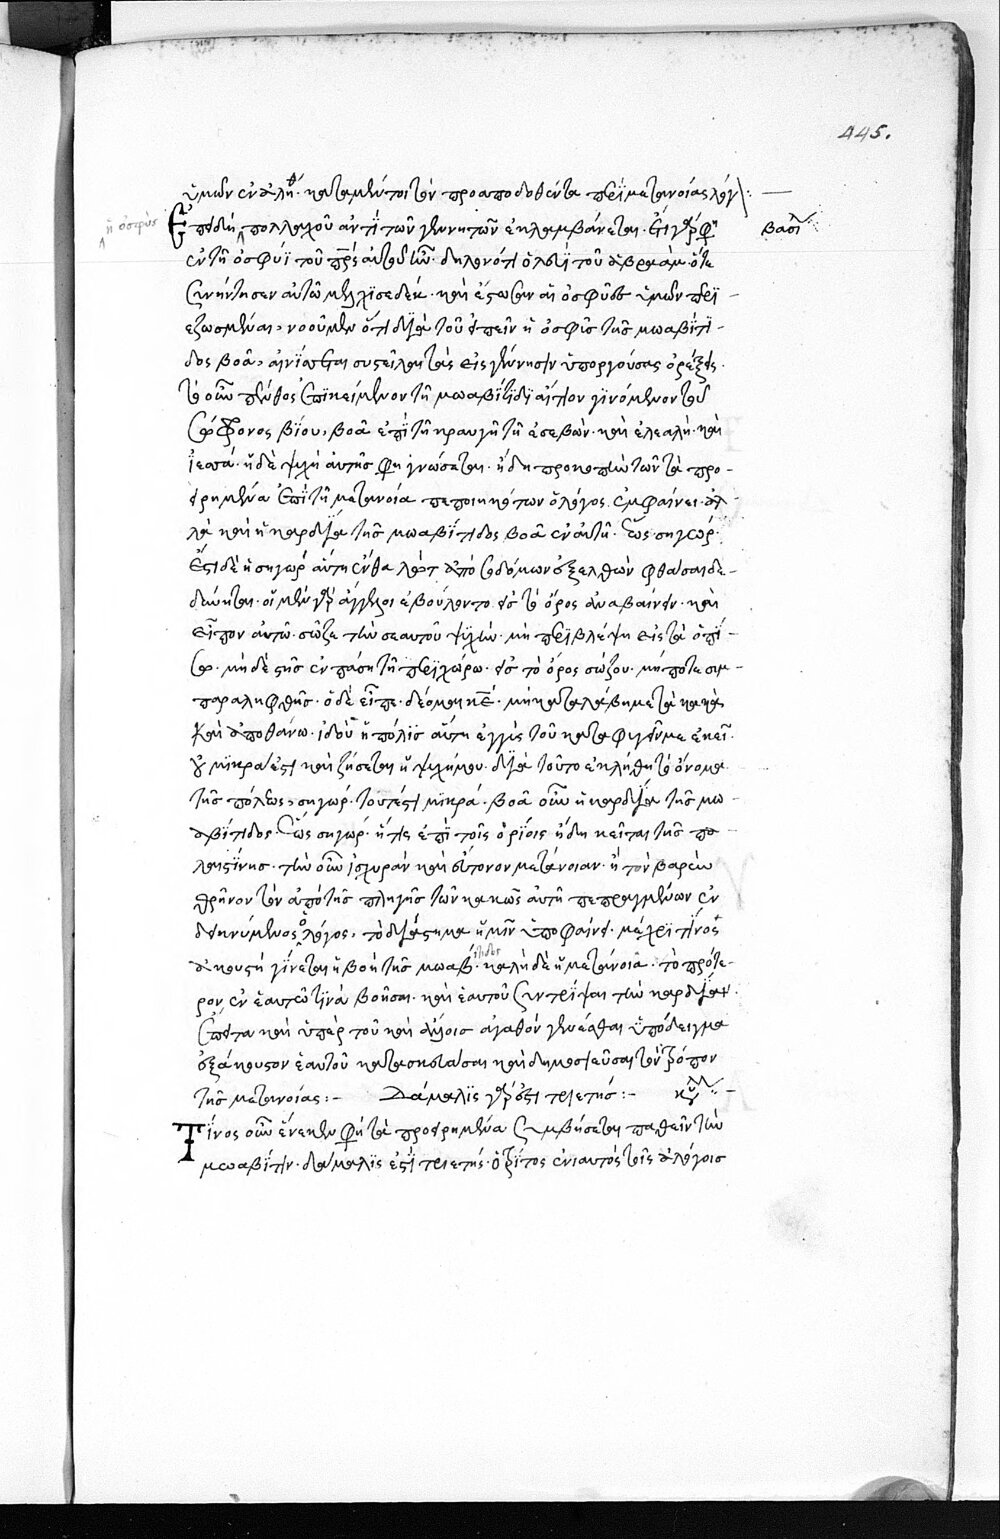 445.
ὑμῶν ἐν ἀληθ· κατα μέντοι τὸν προαποδοθέντα περὶ μετανοίας λόγ :
ἡ ὀσφὺς
Ἐπειδὴ πολλαχοῦ ἀντὶ τῶν γεννητῶν ἐκλαμβάνεται· ἔτι γάρ φη
βασι
ἐν τῇ ὀσφύϊ τοῦ πρς αὐτοῦ ἦν· δηλονότι ὁ λευῒ τοῦ ἀβραάμ· ὅτε
συνήντησεν αὐτῶ μελχισεδέκ· καὶ ἔστωσαν αἱ ὀσφύες ὑμῶν περι-
εζωσμέναι, νοοῦμεν ὅτι διὰ τοῦ εἰπεῖν ἡ ὀσφῦς τῆς μωαβίτι-
δος βοᾶ, αἰνίττεται συστεῖλαι τὰς εἰς γέννησιν ὑπουργούσας ὀρέξεις·
τὸ οὖν πένθος ἐπικείμενον τῇ μωαβίτιδι αἴτιον γινόμενον τοῦ
σώφρονος βίου, βοᾶ ἐπὶ τῇ κραυγῇ τῇ ἐσεβὼν· καὶ ἐλεαλὴ· καὶ
ἰεσσά· ἡ δὲ ψυχὴ αὐτῆς φη γνώσεται· ἤδη προκοπὴν τῶν τὰ προ-
ειρημένα ἐπὶ τῇ μετανοία πεποιηκότων ὁ λόγος ἐμφαίνει· ἀλ-
λὰ καὶ ἡ καρδία τῆς μωαβίτιδος βοᾶ ἐν αὐτῇ· ἕως σηγώρ·
Ἔστι δὲ ἡ σηγώρ αὕτη ἔνθα λὼτ ἀπὸ σοδόμων ἐξελθὼν φθάσαι δε-
δύνηται· οἱ μὲν γὰρ ἄγγελοι ἐβούλοντο εἰς τὸ ὄρος ἀναβαίνειν· καὶ
εἶπον αὐτῶ· σῶζε τὴν σεαυτοῦ ψυχήν· μὴ περιβλέψῃ εἰς τὰ ὀπί-
σω· μὴ δὲ στῆς ἐν πάσῃ τῇ περιχώρω· εἰς τὸ ὄρος σώζου· μήποτε συμ-
παραληφθῇς· ὁ δὲ εἶπε· δέομαι κε· μὴ καταλάβῃ με τὰ κακὰ
καὶ ἀποθάνω· ἰδοὺ ἡ πόλις αὕτη ἐγγὺς τοῦ καταφυγεῖν με ἐκεῖ·
οὐ μικρά ἐστι καὶ ζήσεται ἡ ψυχή μου· διὰ τοῦτο ἐκλήθη τὸ ὄνομα
τῆς πόλεως, σηγώρ· τουτέστι μικρά· βοᾶ οὖν ἡ καρδία τῆς μω-
αβίτιδος· ἕως σηγώρ· ἥτις ἐπὶ τοῖς ὁρίοις ἤδη κεῖται τῆς πα-
λαιστίνης· τὴν οὖν ἰσχυρὰν καὶ σύντονον μετάνοιαν· ἢ τὸν βαρὺν
θρῆνον τὸν ἀπὸ τῆς πληγῆς τῶν κακῶς αὐτῇ πεπραγμένων ἐν
δεικνύμενος ὁ λόγος, τὸ διάστημα ἡμῖν ὑποφαίνει· μέχρι τίνος
ἀκουστὴ γίνεται ἡ βοὴ τῆς μωαβίτιδος· καλὴ δὲ ἡ μετάνοια· τὸ πρότε-
ρον ἐν ἑαυτῶ τινὰ βοῆσαι· καὶ ἑαυτοῦ συντρίψαι τὴν καρδίαν·
ἔπειτα καὶ ὑπὲρ τοῦ καὶ ἄλλοις ἀγαθὸν γενέσθαι ὑπόδειγμα
ἐξάκουστον ἑαυτοῦ κατασκευάσαι καὶ δημοσιεῦσαι τὸν τρόπον
τῆς μετανοίας :- Δάμαλις γάρ ἐστι τριετής :- κυ :-
Τίνος οὖν ἕνεκεν φη τὰ προειρημένα συμβήσεται παθεῖν τὴν
μωαβῖτιν· δάμαλις ἐστὶ τριετής· ὁ τρίτος ἐνιαυτὸς τοῖς ἀλόγοις